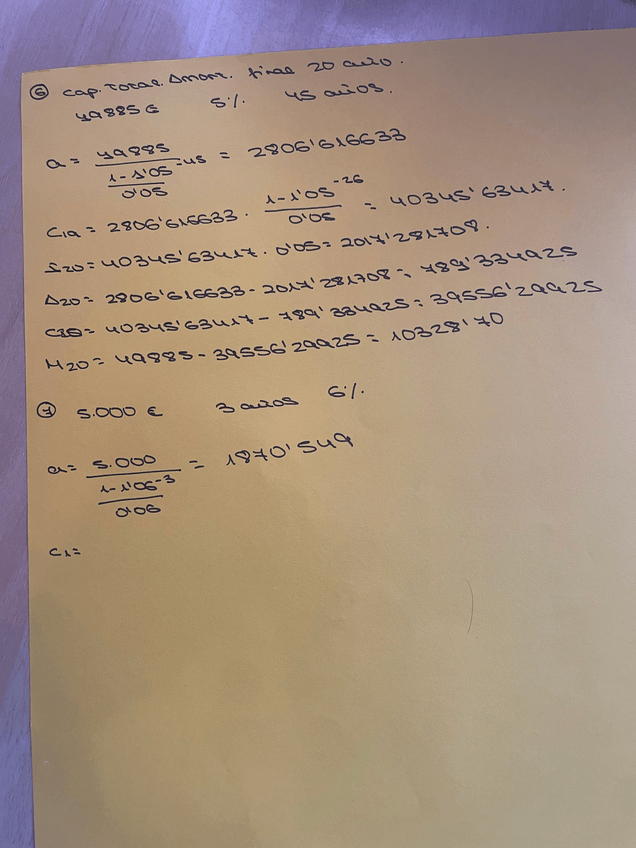 ⑥ Cap. Total. Amort. final 20 año.
49885€ 5% 45 años.
a = 49885 / ((1-1'05^-45) / 0'05) = 2806'616633
C19 = 2806'616633 · (1-1'05^-26) / 0'05 = 40345'63417.
I20 = 40345'63417 · 0'05 = 2017'281708.
A20 = 2806'616633 - 2017'281708 = 789'334925
C20 = 40345'63417 - 789'334925 = 39556'29925
M20 = 49885 - 39556'29925 = 10328'70
⑦ 5.000 € 3 años 6%.
a = 5.000 / ((1-1'06^-3) / 0'06) = 1870'549
C1=